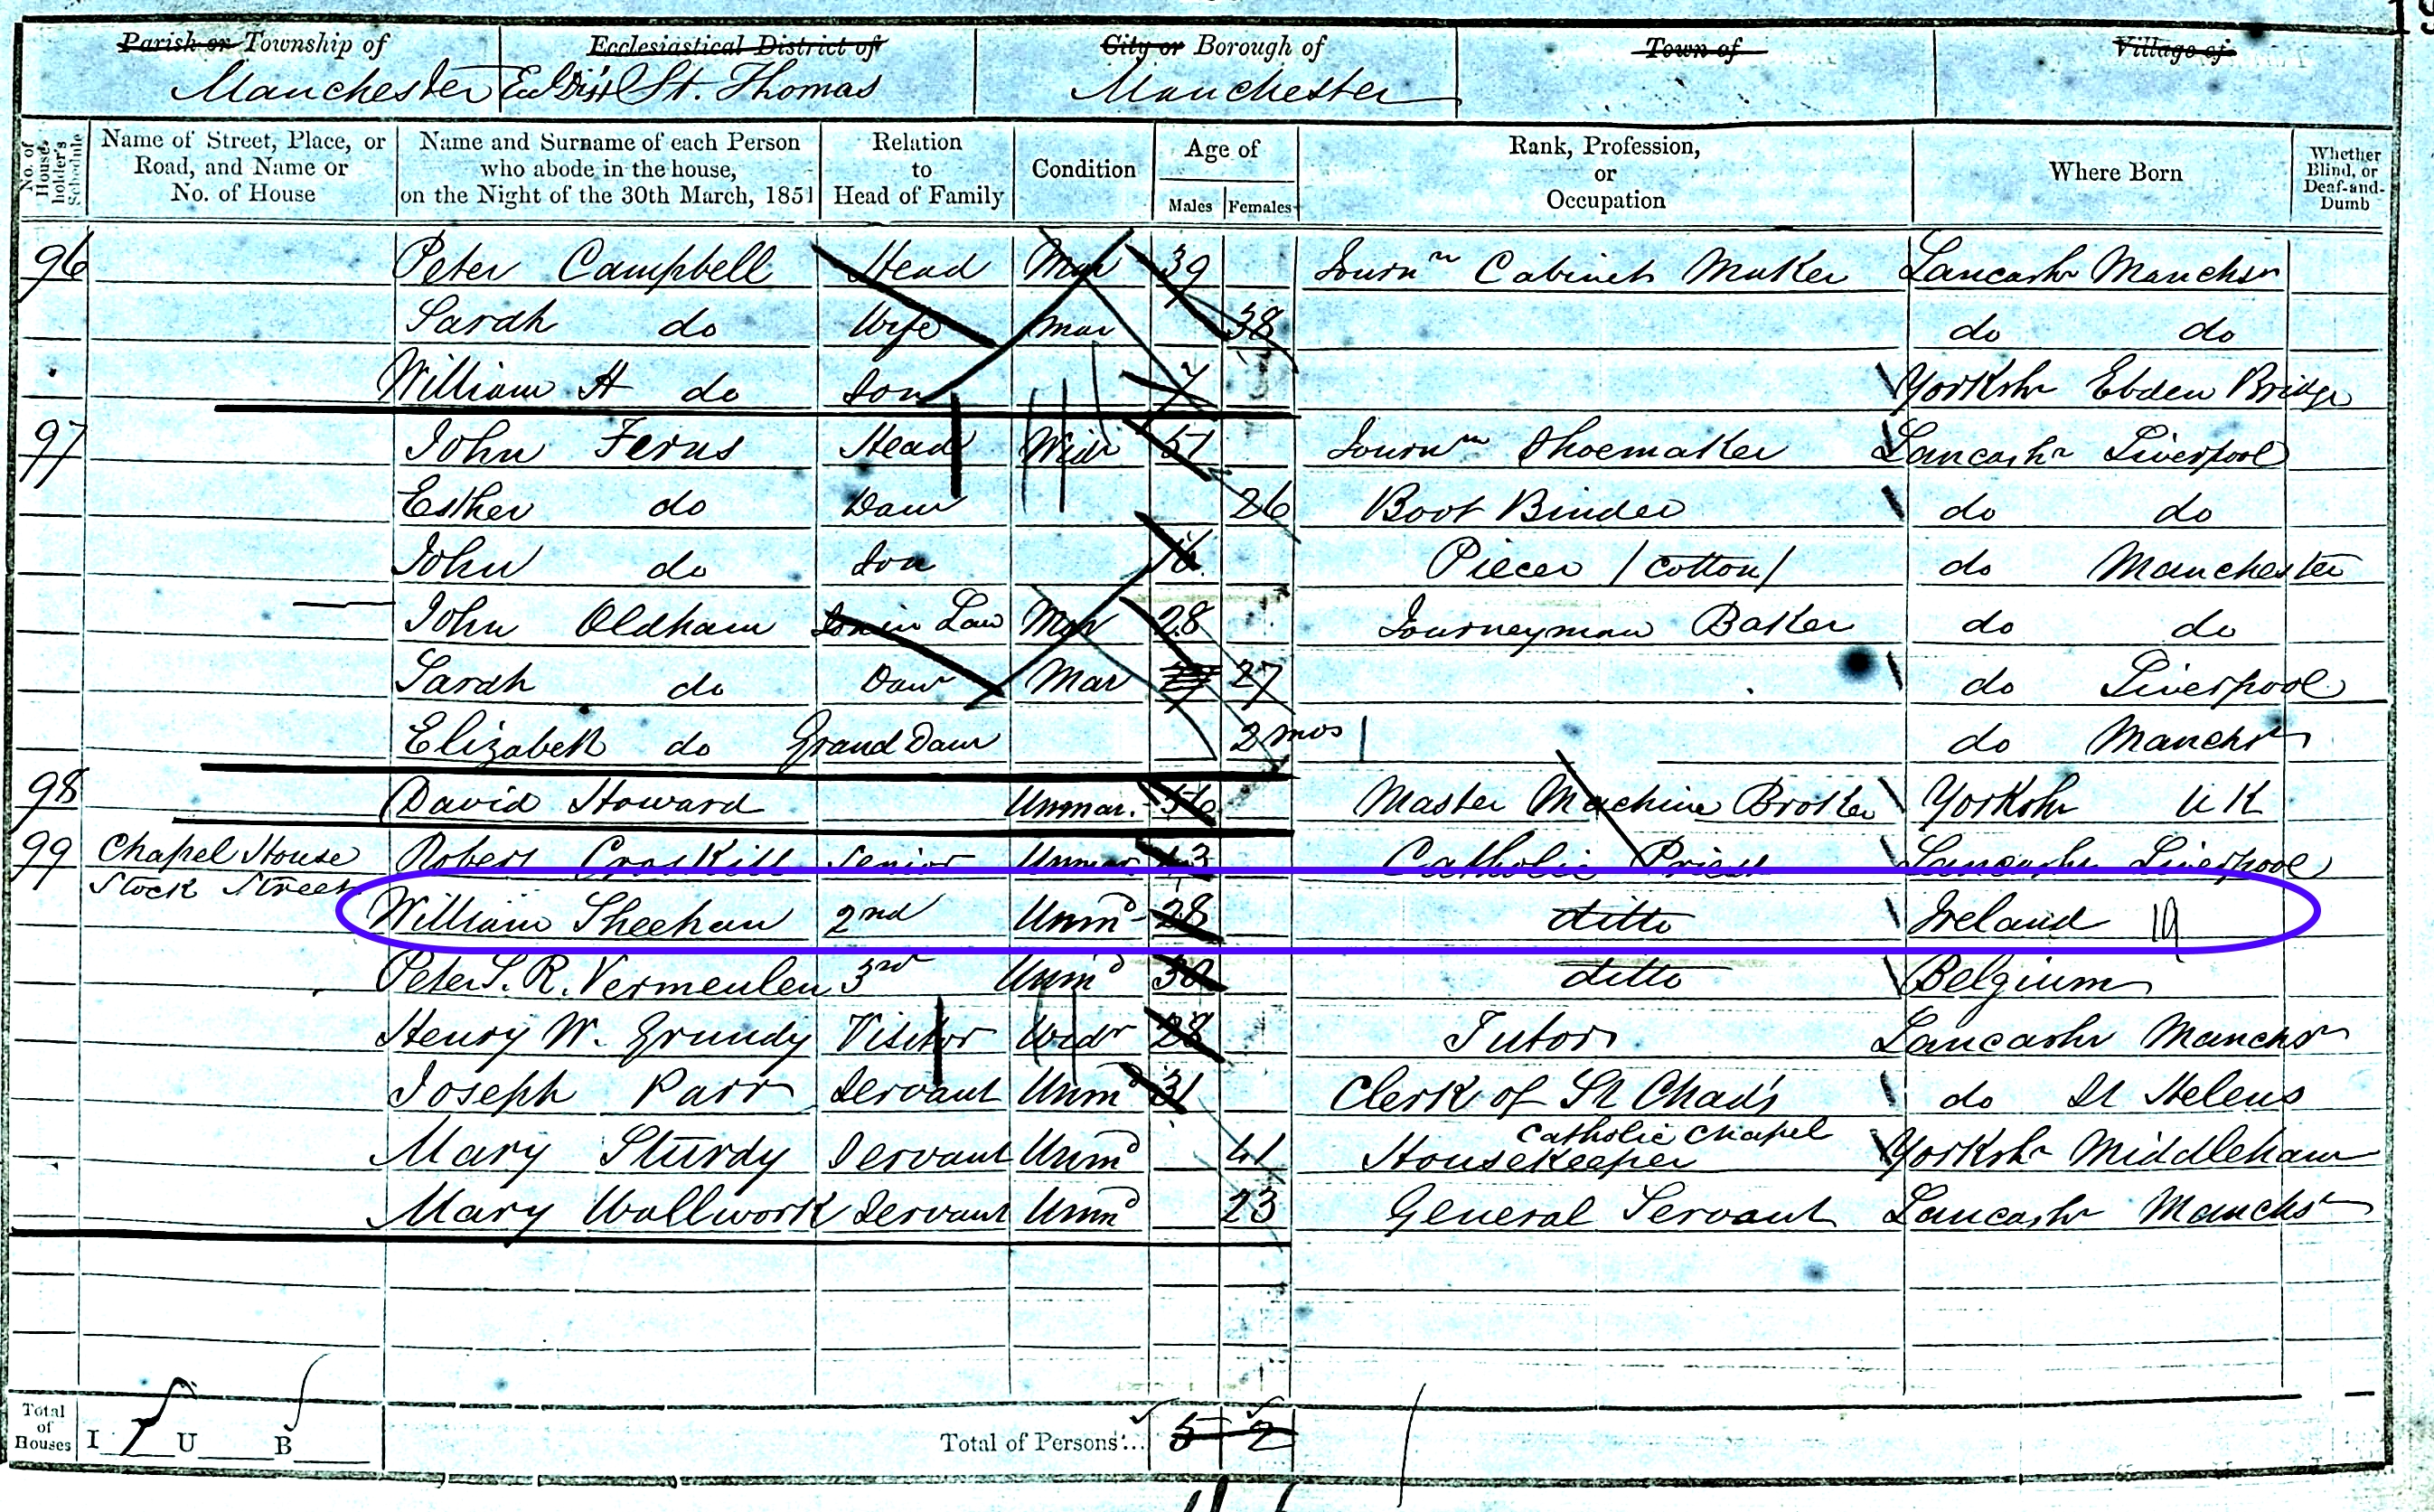 19
Parish or Township of Ecclesiastical District of City or Borough of Town of Village of
Manchester Ecl Dist St. Thomas Manchester
No. of House-holder's Schedule
Name of Street, Place, or Road, and Name or No. of House
Name and Surname of each Person who abode in the house, on the Night of the 30th March, 1851
Relation to Head of Family
Condition
Age of
Males Females
Rank, Profession, or Occupation
Where Born
Whether Blind, or Deaf-and-Dumb
96 Peter Campbell Head Mar 39 Journm Cabinet Maker Lancashr Manchsr
Sarah do Wife Mar 38 do do
William H do Son 7 Yorkshr Ebden Bridge
97 John Ferns Head Widr 57 Journm Shoemaker Lancashr Liverpool
Esther do Daur 26 Boot Binder do do
John do Son 16 Piecer (Cotton) do Manchester
John Oldham Son in Law Mar 28 Journeyman Baker do do
Sarah do Daur Mar 27 do Liverpool
Elizabeth do Grand Daur 2 mos do Manchr
98 David Howard Unmar. 56 Master Machine Broker Yorkshr U K
99 Chapel House Robert Croskill Senior Unmar 43 Catholic Priest Lancashr Liverpool
Stock Street William Sheehan 2nd Unmd 28 ditto Ireland
Peter S. R. Vermeulen 3rd Unmd 30 ditto Belgium
Henry W. Grundy Visitor Widr 28 Tutor Lancashr Manchsr
Joseph Parr Servant Unmd 31 Clerk of St Chad's Catholic Chapel do St Helens
Mary Sturdy Servant Unmd 41 Housekeeper Yorkshr Middleham
Mary Wallwork Servant Unmd 23 General Servant Lancashr Manchsr
Total of Houses I 1 U B Total of Persons... 5 2